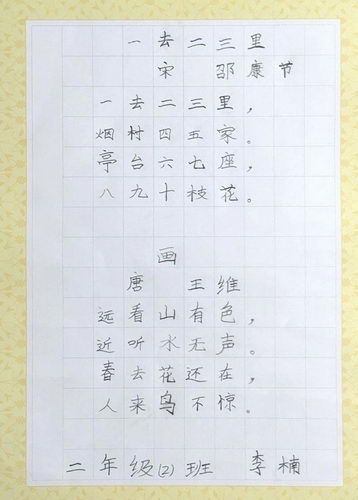 一去二三里
宋 邵康节
一去二三里，
烟村四五家。
亭台六七座，
八九十枝花。
画
唐 王维
远看山有色，
近听水无声。
春去花还在，
人来鸟不惊。
二年级(2)班 李楠